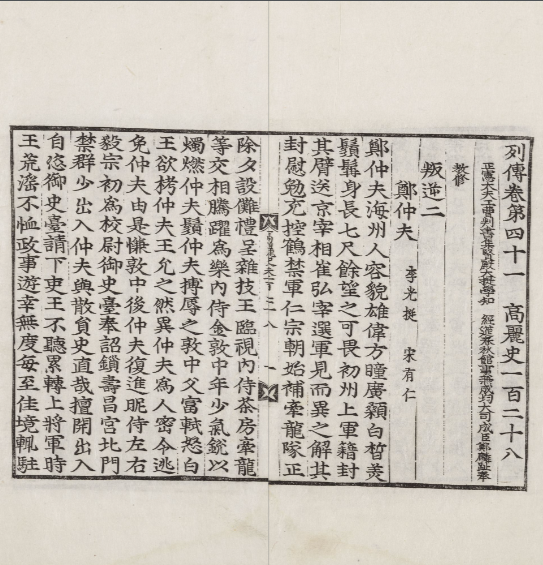 列傳卷第四十一　高麗史一百二十八
正憲大夫工曹判書集賢殿大提學知　經筵春秋館事兼成均大司成臣鄭麟趾奉
教修
叛逆二
鄭仲夫　李光挺　宋有仁
鄭仲夫海州人容貌雄偉方瞳廣顙白皙美
鬚髯身長七尺餘望之可畏初州上軍籍封
其臂送京宰相崔弘宰選軍見而異之解其
封慰勉充控鶴禁軍仁宗朝始補牽龍隊正
除夕設儺禮呈雜技王臨視內侍茶房牽龍
等交相騰躍爲樂內侍金敦中年少氣銳以
燭燃仲夫鬚仲夫搏辱之敦中父富軾怒白
王欲栲仲夫王允之然異仲夫爲人密令逃
免仲夫由是慊敦中後仲夫復進昵侍左右
毅宗初爲校尉御史臺奉詔鎖壽昌宮北門
禁群少出入仲夫與散員史直哉擅開出入
自恣御史臺請下吏王不聽累轉上將軍時
王荒淫不恤政事遊幸無度每至佳境輒駐